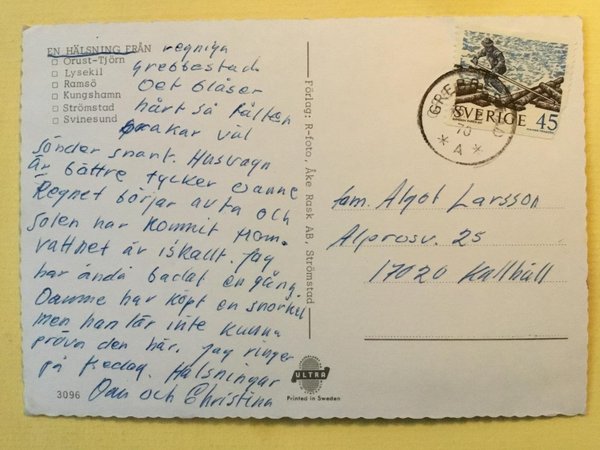 EN HÄLSNING FRÅN regniga
□ Orust-Tjörn grebbestad
□ Lysekil Det blåser
□ Ramsö hårt så tälten
□ Kungshamn brakar väl
□ Strömstad
□ Svinesund
sönder snart. Husvagn
är bättre tycker Danne
Regnet börjar avta och
solen har kommit Mom.
vattnet är iskallt. Jag
har ändå badat en gång.
Damme har köpt en snorkel
men han lär inte kunna
pröva den här. Jag ringer
på fredag. Hälsningar
Dan och Christina
3096
Förlag: R-foto, Åke Rask AB, Strömstad
ULTRA
Printed in Sweden
SVERIGE 45
70
* A *
fam. Algot Larsson
Alprosv. 25
17020 Kallhäll